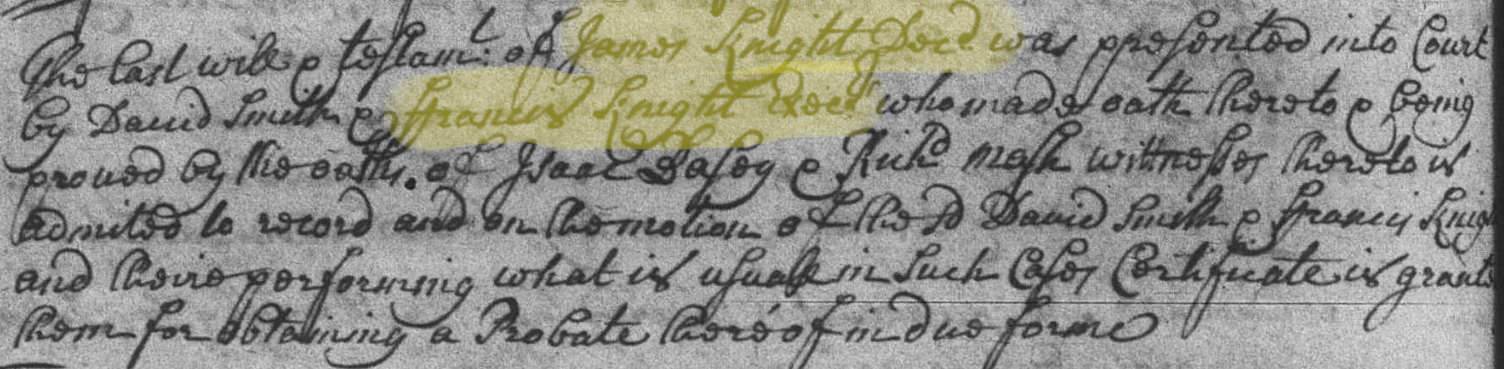 The last will & testamt: of James Knight Decd was presented into Court
by David Smith & Francis Knight Exec who made oath thereto & being
proved by the oaths of Isaac Dasey & Richd Nash wittnesses thereto is
admited to record and on the motion of the sd David Smith & Francis Knig
and their performing what is usuall in such Cases Certificate is grante
them for obtaining a Probate thereof in due forme